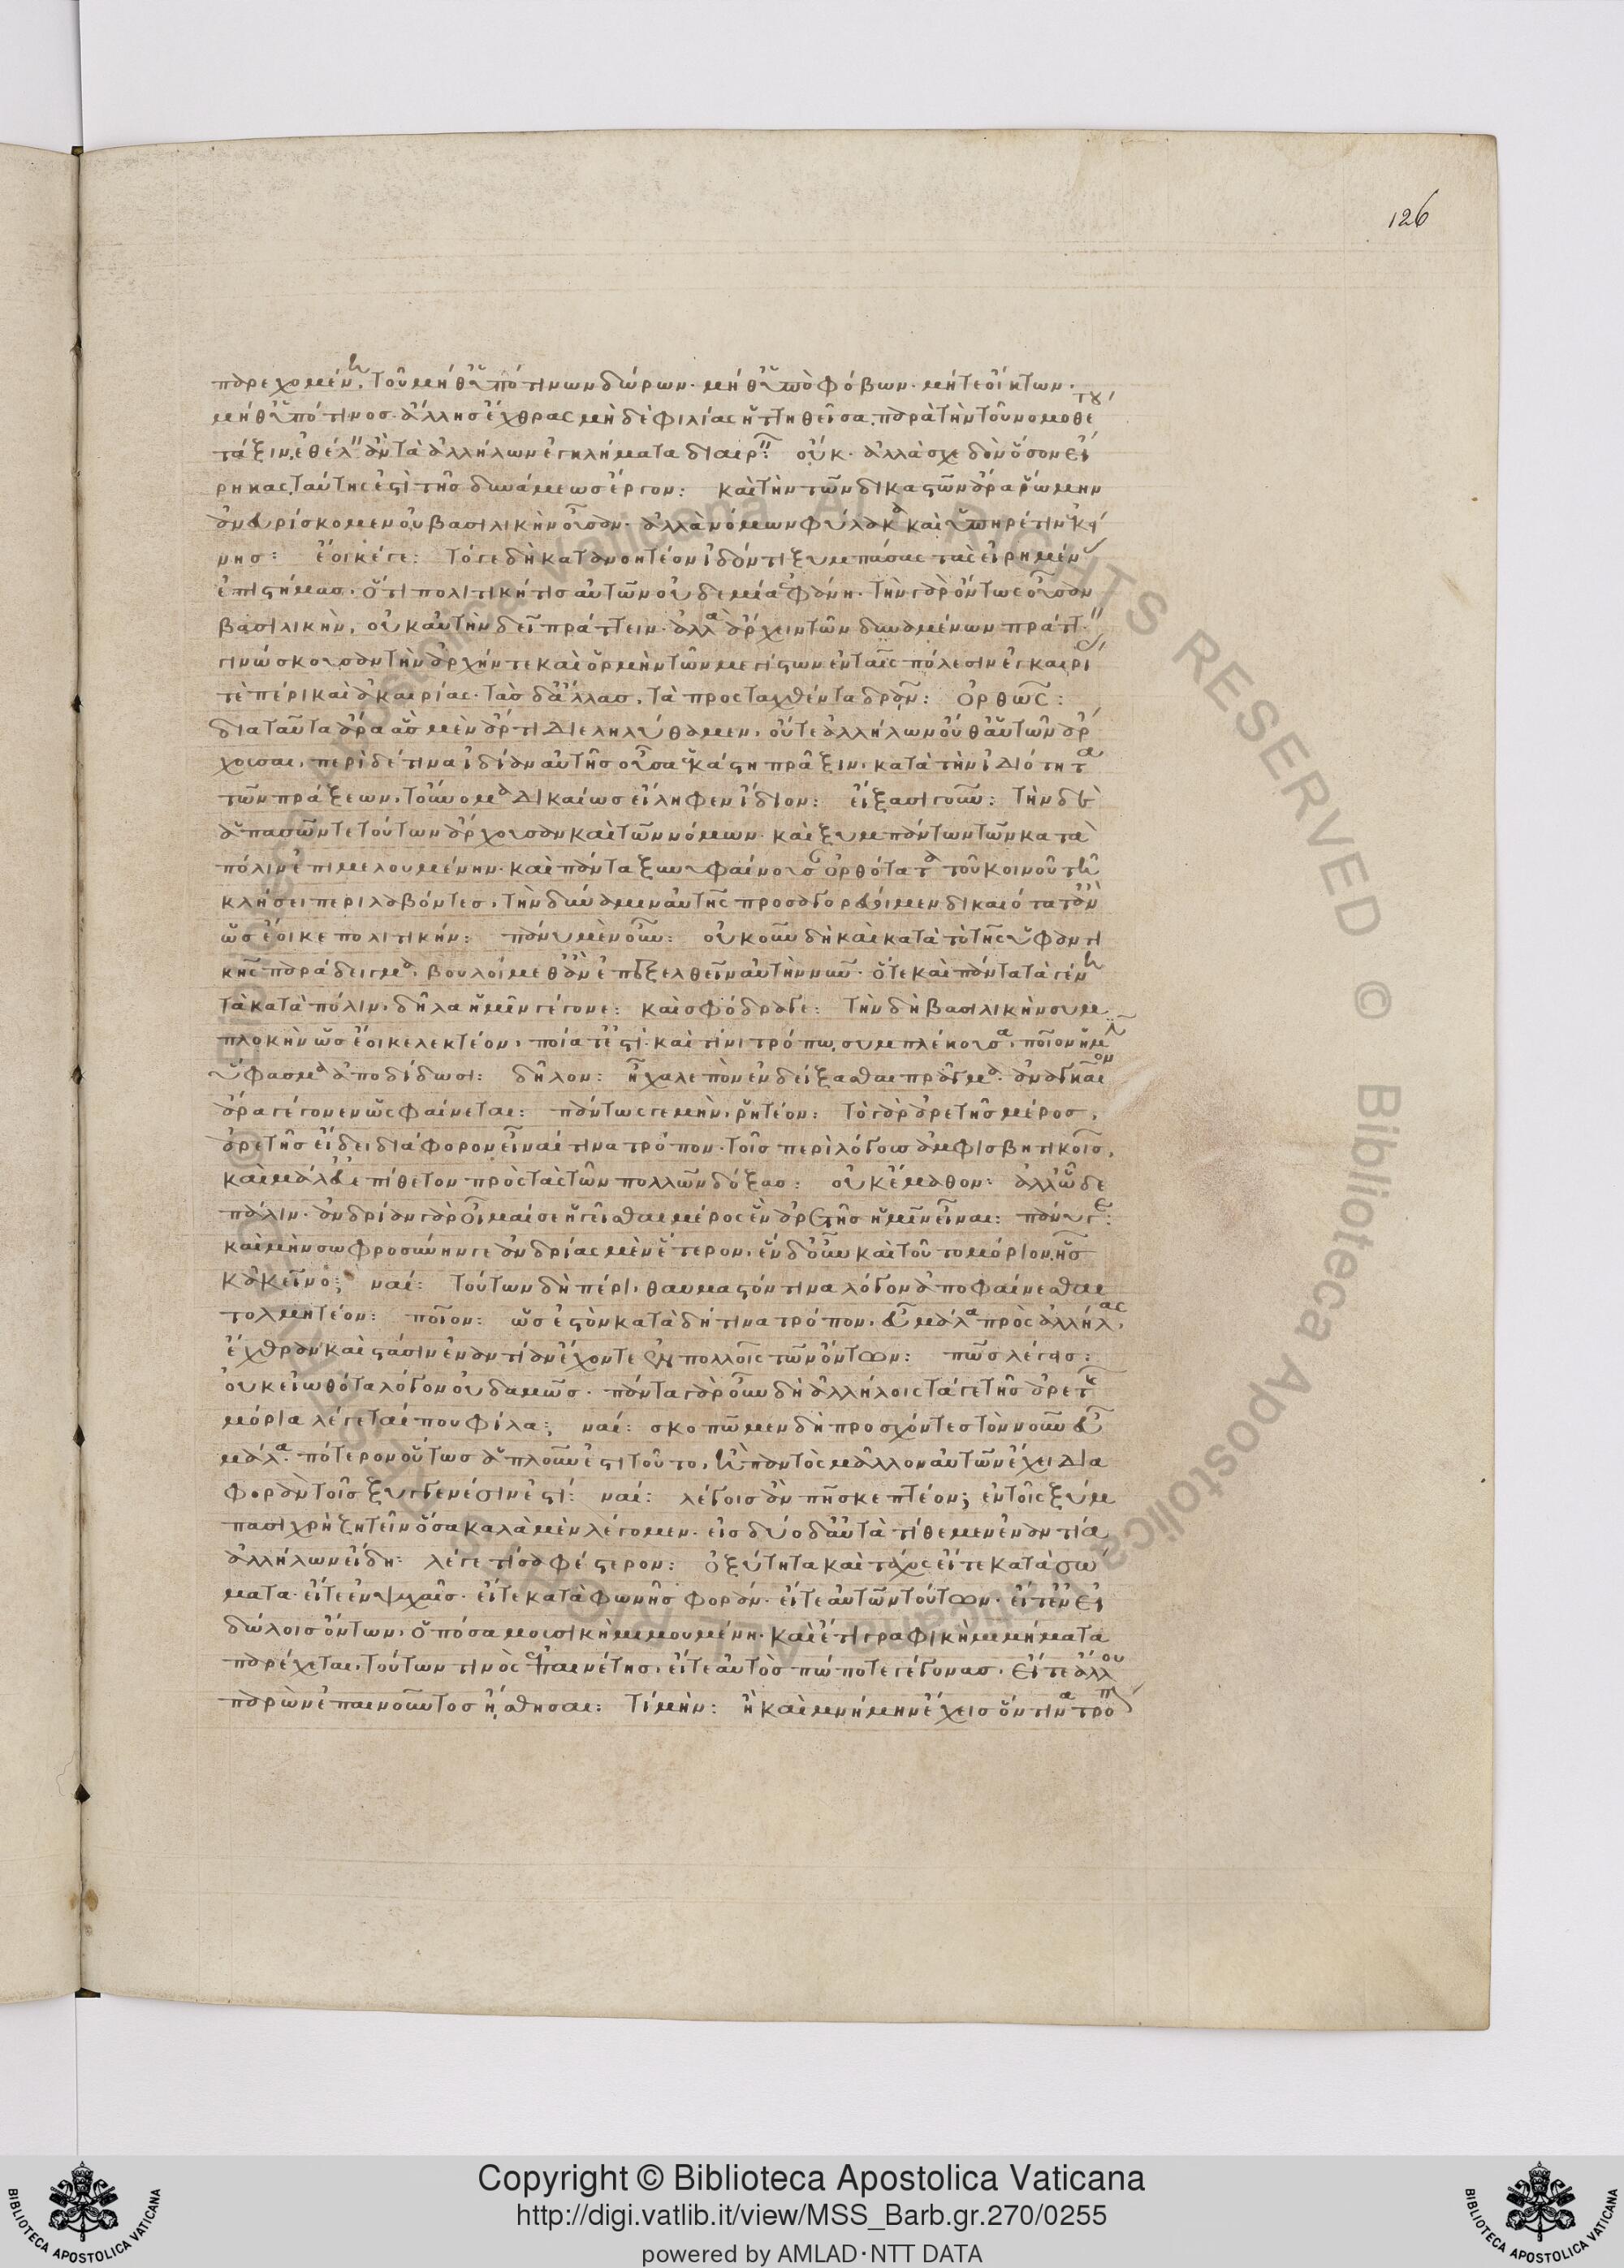 126
παρεχομένη, τοῦ μήθ' ὑπό τινων δώρων· μήθ' ὑπὸ φόβων· μήτε οἴκτων·
μήθ' ὑπό τινος· ἄλλης ἔχθρας μηδὲ φιλίας ἡττηθεῖσα, παρὰ τὴν τοῦ νομοθέτου
τάξιν, ἐθέλειν ἂν τὰ ἀλλήλων ἐγκλήματα διαιρεῖν: οὔκ· ἀλλὰ σχεδὸν ὅσον εἴ
ρηκας, ταύτης ἐστὶ τῆς δυνάμεως ἔργον: καὶ τὴν τῶν δικαστῶν ἄρα ῥώμην
ἀνευρίσκομεν οὐ βασιλικὴν οὖσαν· ἀλλὰ νόμων φύλακα καὶ ὑπηρέτιν ἐκεί
νης: ἔοικέ γε: τόγε δὴ κατανοητέον ἰδόντι ξυμπάσας τὰς εἰρημένας
ἐπιστήμας· ὅτι πολιτική τις αὐτῶν οὐδεμία ἐφάνη· τὴν γὰρ ὄντως οὖσαν
βασιλικὴν, οὐκ αὐτὴν δεῖ πράττειν· ἀλλὰ ἄρχειν τῶν δυναμένων πράττειν
γινώσκουσαν τὴν ἀρχήν τε καὶ ὁρμὴν τῶν μεγίστων ἐν ταῖς πόλεσιν ἐγκαιρίας
τὲ πέρι καὶ ἀκαιρίας· τὰς δ' ἄλλας, τὰ προσταχθέντα δρᾶν: ὀρθῶς:
διὰ ταῦτα ἄρα ἃς μὲν ἄρτι διεληλύθαμεν, οὔτε ἀλλήλων οὔθ' αὑτῶν ἄρ
χουσαι, περὶ δέ τινα ἰδίαν αὑτῆς οὖσα ἑκάστη πρᾶξιν, κατὰ τὴν ἰδιότητα
τῶν πράξεων, τοὔνομα δικαίως εἴληφεν ἴδιον: εἴξασι γοῦν: τὴν δὲ
ἁπασῶν τε τούτων ἄρχουσαν καὶ τῶν νόμων· καὶ ξυμπάντων τῶν κατὰ
πόλιν ἐπιμελουμένην· καὶ πάντα ξυνυφαίνουσαν ὀρθότατα τοῦ κοινοῦ τῇ
κλήσει περιλαβόντες, τὴν δύναμιν αὐτῆς προσαγορεύοιμεν δικαιότατ' ἂν
ὡς ἔοικε πολιτικήν: πάνυ μὲν οὖν: οὐκοῦν δὴ καὶ κατὰ τὸ τῆς ὑφαντι
κῆς παράδειγμα, βουλοίμεθ' ἂν ἐπεξελθεῖν αὐτὴν νῦν· ὅτε καὶ πάντα τὰ γένη
τὰ κατὰ πόλιν, δῆλα ἡμῖν γέγονε: καὶ σφόδρα γε: τὴν δὴ βασιλικὴν συμ
πλοκὴν ὡς ἔοικε λεκτέον, ποία τέ ἐστι· καὶ τίνι τρόπῳ συμπλέκουσα, ποῖον ἡμῖν
ὕφασμα ἀποδίδωσι: δῆλον: ἦ χαλεπὸν ἐνδείξασθαι πρᾶγμα· ἀναγκαῖον
ἄρα γέγονεν ὡς φαίνεται: πάντως γε μὴν, ῥητέον: τὸ γὰρ ἀρετῆς μέρος,
ἀρετῆς εἴδει διάφορον εἶναί τινα τρόπον· τοῖς περὶ λόγους ἀμφισβητικοῖς,
καὶ μάλ' εὐεπίθετον πρὸς τὰς τῶν πολλῶν δόξας: οὐκ ἔμαθον: ἀλλ' ὧδε
πάλιν· ἀνδρίαν γὰρ οἶμαί σε ἡγεῖσθαι μέρος ἓν ἀρετῆς ἡμῖν εἶναι: πάνυ γε:
καὶ μὴν σωφροσύνην γε ἀνδρίας μὲν ἕτερον, ἓν δ' οὖν καὶ τοῦτο μόριον, ἧς
κἀκεῖνο: ναί: τούτων δὴ πέρι, θαυμαστόν τινα λόγον ἀποφαίνεσθαι
τολμητέον: ποῖον: ὡς ἐστὸν κατὰ δή τινα τρόπον, εὖ μάλα πρὸς ἀλλήλας,
ἔχθραν καὶ στάσιν ἐναντίαν ἔχοντε ἐν πολλοῖς τῶν ὄντων: πῶς λέγεις:
οὐκ εἰωθότα λόγον οὐδαμῶς· πάντα γὰρ οὖν δὴ ἀλλήλοις τά γε τῆς ἀρετῆς
μόρια λέγεταί που φίλα; ναί: σκοπῶμεν δὴ προσχόντες τὸν νοῦν εὖ
μάλα· πότερον οὕτως ἁπλοῦν ἐστι τοῦτο, ἢ παντὸς μᾶλλον αὐτῶν ἔχει δια
φορὰν τοῖς ξυγγενέσιν ἐστί: ναί: λέγοις ἂν πῇ σκεπτέον; ἐν τοῖς ξύμ
πασι χρὴ ζητεῖν ὅσα καλὰ μὲν λέγομεν· εἰς δύο δ' αὐτὰ τίθεμεν ἐναντία
ἀλλήλων εἴδη: λέγε τί σαφέστερον: ὀξύτητα καὶ τάχος εἴτε κατὰ σώ
ματα· εἴτε ἐν ψυχαῖς· εἴτε κατὰ φωνῆς φοράν· εἴτε αὐτῶν τούτων· εἴτ' ἐν εἰ
δώλοις ὄντων, ὁπόσα μουσικὴ μιμουμένη· καὶ ἔτι γραφικὴ μιμήματα
παρέχεται, τούτων τινὸς ἐπαινέτης, εἴτε αὐτὸς πώποτε γέγονας, εἴτε ἄλλου
παρὼν ἐπαινοῦντος ᾔσθησαι: τί μήν: ἦ καὶ μνήμην ἔχεις ὅντινα τρόπον
Copyright © Biblioteca Apostolica Vaticana
http://digi.vatlib.it/view/MSS_Barb.gr.270/0255
powered by AMLAD·NTT DATA